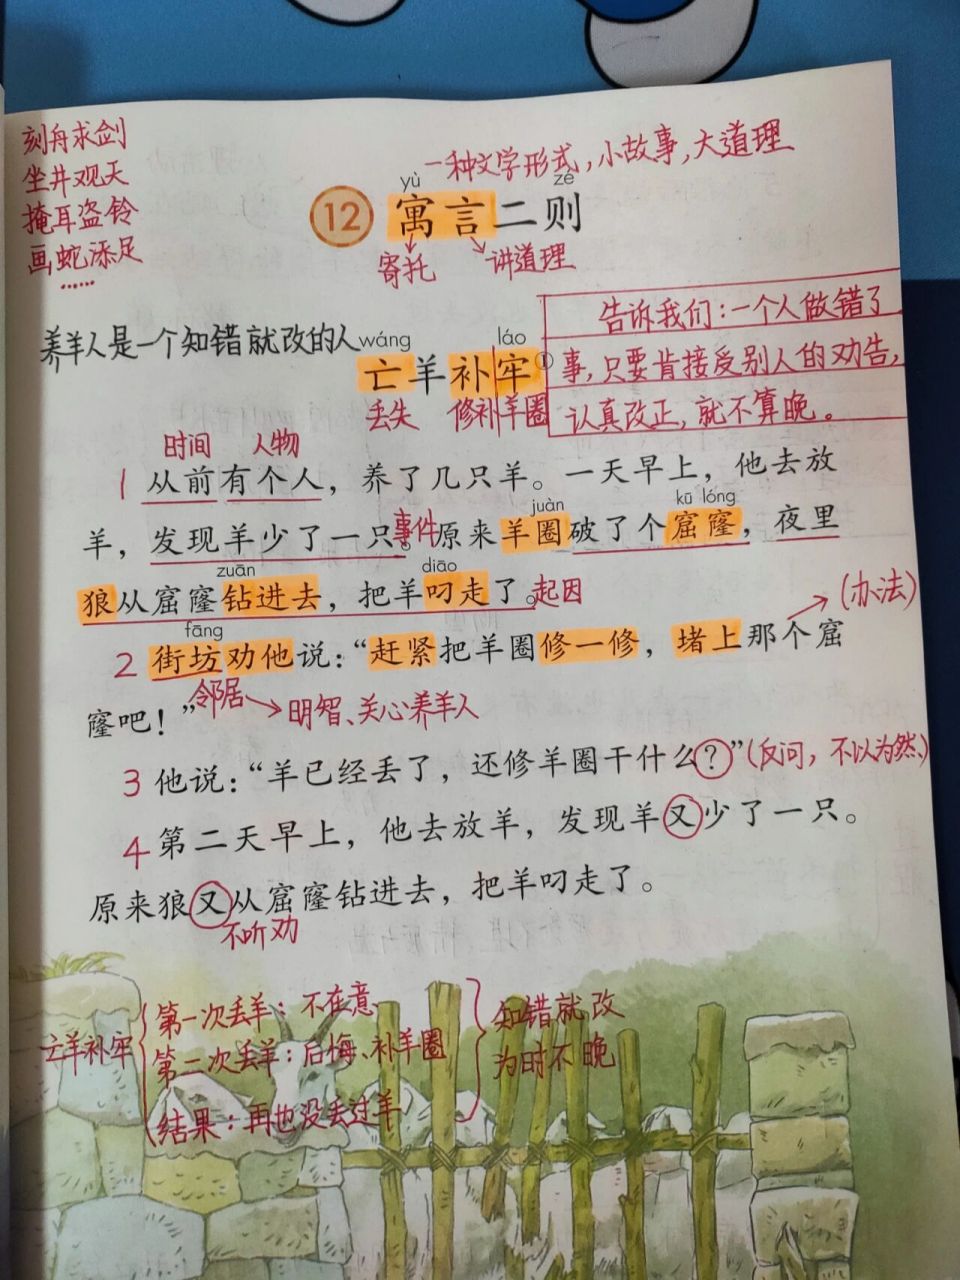 刻舟求剑
坐井观天
掩耳盗铃
画蛇添足
……
一种文学形式,小故事,大道理
yù zé
12 寓言二则
寄托 讲道理
告诉我们:一个人做错了
事,只要肯接受别人的劝告,
认真改正,就不算晚。
养羊人是一个知错就改的人
wáng láo
亡羊补牢①
丢失 修补 羊圈
时间 人物
1 从前有个人,养了几只羊。一天早上,他去放
juàn kū lóng
羊,发现羊少了一只。事件 原来羊圈破了个窟窿,夜里
zuān diāo
狼从窟窿钻进去,把羊叼走了。起因
(办法)
fāng
2 街坊劝他说:“赶紧把羊圈修一修,堵上那个窟
邻居 明智、关心养羊人
窿吧!”
3 他说:“羊已经丢了,还修羊圈干什么?”(反问,不以为然)
4 第二天早上,他去放羊,发现羊又少了一只。
原来狼又从窟窿钻进去,把羊叼走了。
不听劝
亡羊补牢
第一次丢羊:不在意
第二次丢羊:后悔、补羊圈
结果:再也没丢过羊
知错就改
为时不晚